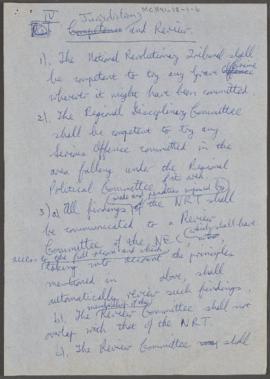 MCH91-18-1-6
IV Jurisdictions
Competence and Review.
1). The National Revolutionary Tribunal shall
be competent to try any Grave offence Offence
wherever it might have been committed.
2). The Regional Disciplinary Committee
shall be competent to try any
Serious Offence committed in the
area falling under the Regional
Political Committee
(and any penalties imposed by)
3) a) All findings of the NRT shall
be communicated to a Review
Committee of the NEC (which shall have
access to the full record and which
taking into account the principles
mentioned in above, shall
automatically review such findings.
membership of the
b). The Review Committee shall not
overlap with that of the NRT.
c). The Review Committee shall